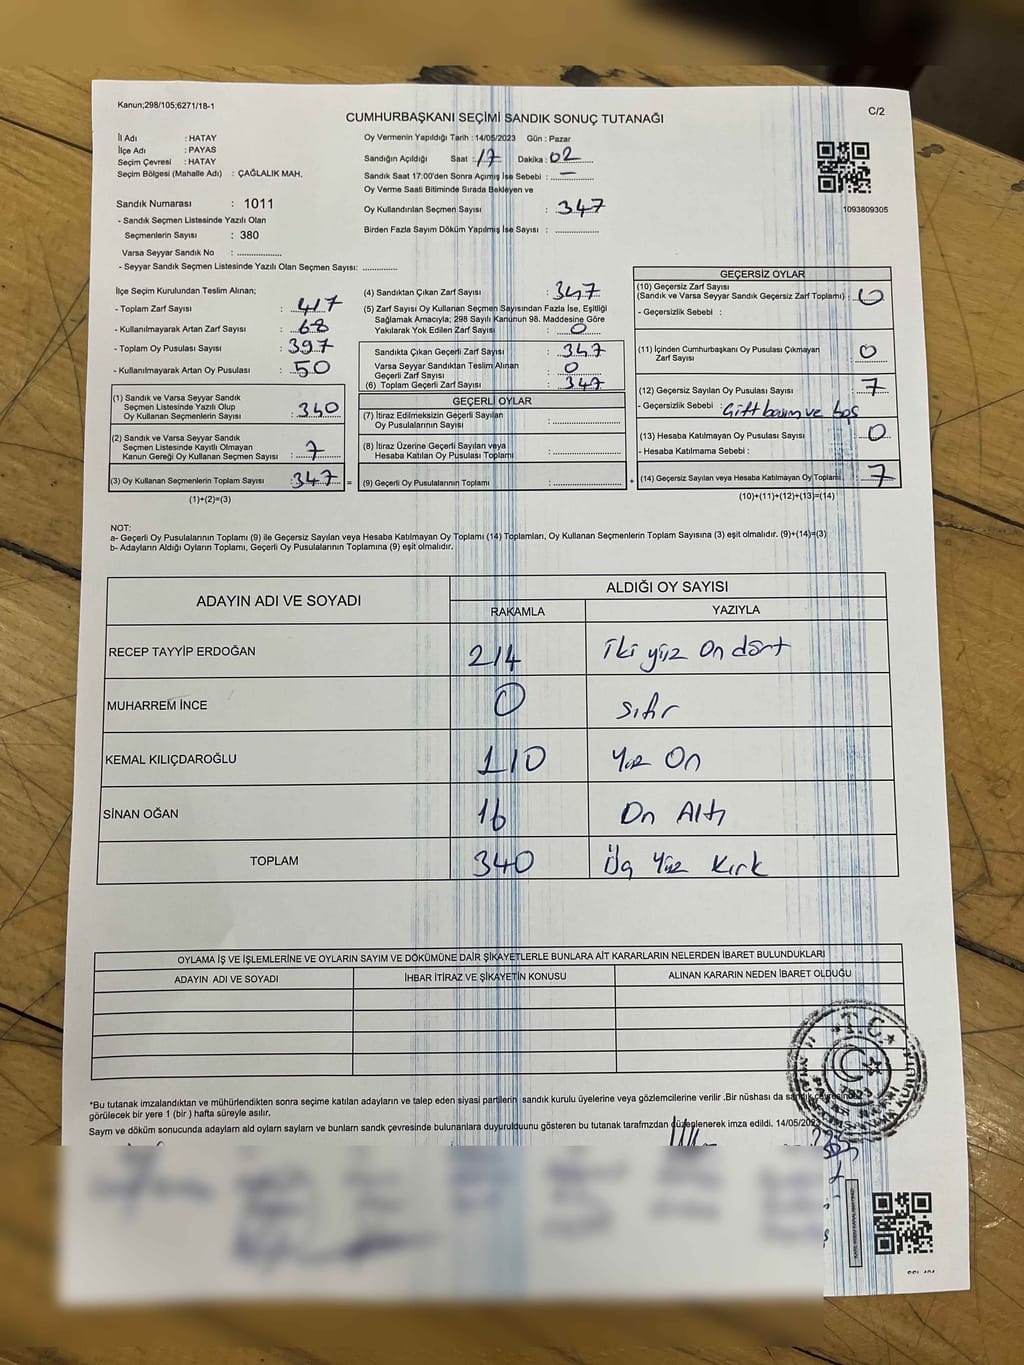 Kanun;298/105;6271/18-1
C/2
CUMHURBAŞKANI SEÇİMİ SANDIK SONUÇ TUTANAĞI
İl Adı : HATAY
İlçe Adı : PAYAS
Seçim Çevresi : HATAY
Seçim Bölgesi (Mahalle Adı) : ÇAĞLALIK MAH.
Sandık Numarası : 1011
- Sandık Seçmen Listesinde Yazılı Olan
Seçmenlerin Sayısı : 380
Varsa Seyyar Sandık No : ..............
- Seyyar Sandık Seçmen Listesinde Yazılı Olan Seçmen Sayısı: ............
Oy Vermenin Yapıldığı Tarih : 14/05/2023 Gün : Pazar
Sandığın Açıldığı Saat : 17 Dakika : 02
Sandık Saat 17:00'den Sonra Açımış İse Sebebi : —
Oy Verme Saati Bitiminde Sırada Bekleyen ve
Oy Kullandırılan Seçmen Sayısı : 347
Birden Fazla Sayım Döküm Yapılmış İse Sayısı : ..............
1093809305
İlçe Seçim Kurulundan Teslim Alınan;
- Toplam Zarf Sayısı : 417
- Kullanılmayarak Artan Zarf Sayısı : 68
- Toplam Oy Pusulası Sayısı : 397
- Kullanılmayarak Artan Oy Pusulası : 50
(1) Sandık ve Varsa Seyyar Sandık
Seçmen Listesinde Yazılı Olup
Oy Kullanan Seçmenlerin Sayısı : 340
(2) Sandık ve Varsa Seyyar Sandık
Seçmen Listesinde Kayıtlı Olmayan
Kanun Gereği Oy Kullanan Seçmen Sayısı : 7
(3) Oy Kullanan Seçmenlerin Toplam Sayısı : 347 =
(1)+(2)=(3)
(4) Sandıktan Çıkan Zarf Sayısı : 347
(5) Zarf Sayısı Oy Kullanan Seçmen Sayısından Fazla İse, Eşitliği
Sağlamak Amacıyla; 298 Sayılı Kanunun 98. Maddesine Göre
Yakılarak Yok Edilen Zarf Sayısı : 0
Sandıkta Çıkan Geçerli Zarf Sayısı : 347
Varsa Seyyar Sandıktan Teslim Alınan
Geçerli Zarf Sayısı : 0
(6) Toplam Geçerli Zarf Sayısı : 347
GEÇERLİ OYLAR
(7) İtiraz Edilmeksizin Geçerli Sayılan
Oy Pusulalarının Sayısı : ..............
(8) İtiraz Üzerine Geçerli Sayılan veya
Hesaba Katılan Oy Pusulası Toplamı : ..............
(9) Geçerli Oy Pusulalarının Toplamı : .............. +
GEÇERSİZ OYLAR
(10) Geçersiz Zarf Sayısı
(Sandık ve Varsa Seyyar Sandık Geçersiz Zarf Toplamı) : 0
- Geçersizlik Sebebi :
(11) İçinden Cumhurbaşkanı Oy Pusulası Çıkmayan
Zarf Sayısı : 0
(12) Geçersiz Sayılan Oy Pusulası Sayısı : 7
- Geçersizlik Sebebi : Çift basım ve boş
(13) Hesaba Katılmayan Oy Pusulası Sayısı : 0
- Hesaba Katılmama Sebebi :
(14) Geçersiz Sayılan veya Hesaba Katılmayan Oy Toplamı : 7
(10)+(11)+(12)+(13)=(14)
NOT:
a- Geçerli Oy Pusulalarının Toplamı (9) ile Geçersiz Sayılan veya Hesaba Katılmayan Oy Toplamı (14) Toplamları, Oy Kullanan Seçmenlerin Toplam Sayısına (3) eşit olmalıdır. (9)+(14)=(3)
b- Adayların Aldığı Oyların Toplamı, Geçerli Oy Pusulalarının Toplamına (9) eşit olmalıdır.
ADAYIN ADI VE SOYADI
ALDIĞI OY SAYISI
RAKAMLA YAZIYLA
RECEP TAYYİP ERDOĞAN 214 iki yüz On dört
MUHARREM İNCE 0 sıfır
KEMAL KILIÇDAROĞLU 110 Yüz On
SİNAN OĞAN 16 On Altı
TOPLAM 340 Üç Yüz Kırk
OYLAMA İŞ VE İŞLEMLERİNE VE OYLARIN SAYIM VE DÖKÜMÜNE DAİR ŞİKAYETLERLE BUNLARA AİT KARARLARIN NELERDEN İBARET BULUNDUKLARI
ADAYIN ADI VE SOYADI İHBAR İTİRAZ VE ŞİKAYETİN KONUSU ALINAN KARARIN NEDEN İBARET OLDUĞU
*Bu tutanak imzalandıktan ve mühürlendikten sonra seçime katılan adayların ve talep eden siyasi partilerin sandık kurulu üyelerine veya gözlemcilerine verilir .Bir nüshası da sandık çevresinde
görülecek bir yere 1 (bir ) hafta süreyle asılır.
Sayım ve döküm sonucunda adayların ald oyların sayların ve bunların sandk çevresinde bulunanlara duyurulduunu gösteren bu tutanak tarafmzdan düzenlenerek imza edildi. 14/05/2023
T.C.